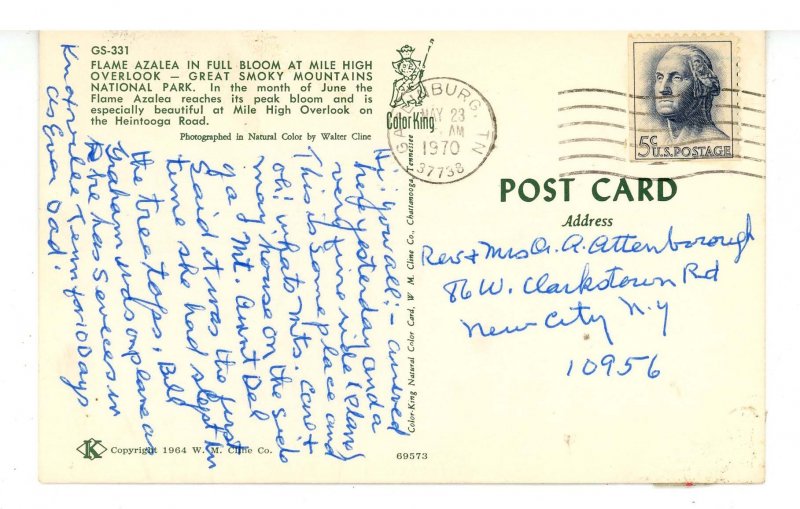 GS-331
FLAME AZALEA IN FULL BLOOM AT MILE HIGH
OVERLOOK — GREAT SMOKY MOUNTAINS
NATIONAL PARK. In the month of June the
Flame Azalea reaches its peak bloom and is
especially beautiful at Mile High Overlook on
the Heintooga Road.
Photographed in Natural Color by Walter Cline
Color King
GATLINBURG, TN
MAY 23
AM
1970
37738
5¢
U.S. POSTAGE
POST CARD
Address
Rev & Mrs A. A. Attenborough
86 W. Clarkstown Rd
New City N.Y
10956
Hi' you all! - arrived
here yesterday and a
very fine ride
This is some place and
oh! whats mts.
may house on the side
of a Mt. Aunt Del
said it was the first
time she had slept in
the tree tops. Bill
Graham on plane as
he has services in
Knoxville Tenn for 10 Days
as Ever Dad.
Color-King Natural Color Card, W. M. Cline Co., Chattanooga, Tennessee
K
Copyright 1964 W. M. Cline Co.
69573